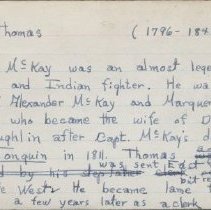 Thomas (1796-184
McKay was an almost lege
and Indian fighter. He wa
Alexander McKay and Marguer
who became the wife of D
ughlin after Capt. McKay's d
onquin in 1811. Thomas a
d by his step later was sent East
e West. He became lame
a few years later as a clerk